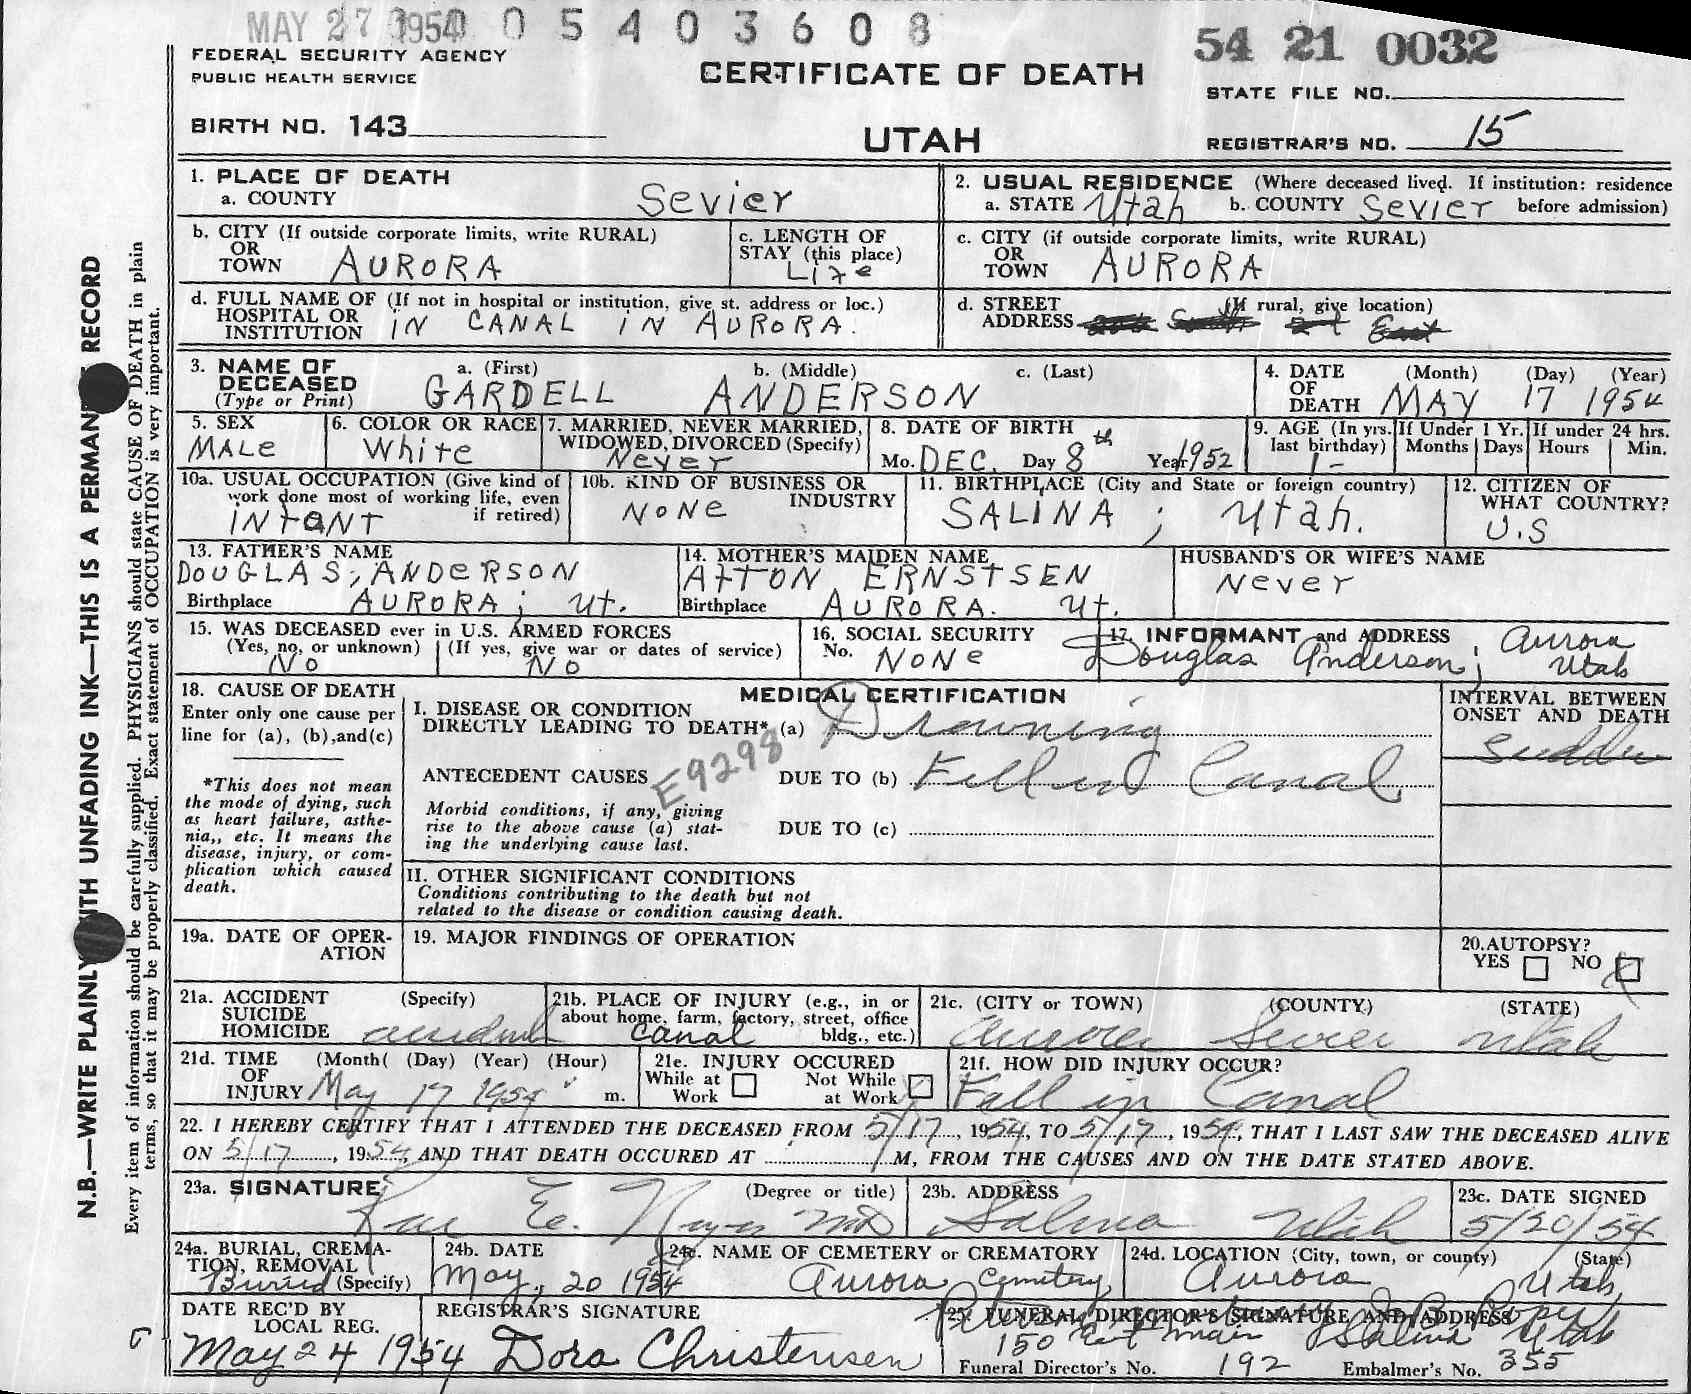 MAY 27 1954 0 5 4 0 3 6 0 8
54 21 0032
FEDERAL SECURITY AGENCY
PUBLIC HEALTH SERVICE
CERTIFICATE OF DEATH
STATE FILE NO.
BIRTH NO. 143
UTAH
REGISTRAR'S NO. 15
N.B.—WRITE PLAINLY WITH UNFADING INK—THIS IS A PERMANENT RECORD
Every item of information should be carefully supplied. PHYSICIANS should state CAUSE OF DEATH in plain
terms, so that it may be properly classified. Exact statement of OCCUPATION is very important.
1. PLACE OF DEATH
a. COUNTY Sevier
2. USUAL RESIDENCE (Where deceased lived. If institution: residence
a. STATE Utah b. COUNTY Sevier before admission)
b. CITY (If outside corporate limits, write RURAL)
OR
TOWN AURORA
c. LENGTH OF
STAY (this place)
Life
c. CITY (if outside corporate limits, write RURAL)
OR
TOWN AURORA
d. FULL NAME OF (If not in hospital or institution, give st. address or loc.)
HOSPITAL OR
INSTITUTION IN CANAL IN AURORA.
d. STREET (If rural, give location)
ADDRESS
3. NAME OF
DECEASED
(Type or Print)
a. (First) b. (Middle) c. (Last)
GARDELL ANDERSON
4. DATE
OF
DEATH
(Month) (Day) (Year)
MAY 17 1954
5. SEX
MALe
6. COLOR OR RACE
White
7. MARRIED, NEVER MARRIED,
WIDOWED, DIVORCED (Specify)
Never
8. DATE OF BIRTH
Mo. DEC. Day 8th Year 1952
9. AGE (In yrs.
last birthday)
1-
If Under 1 Yr.
Months Days
If under 24 hrs.
Hours Min.
10a. USUAL OCCUPATION (Give kind of
work done most of working life, even
if retired)
INfaNT
10b. KIND OF BUSINESS OR
INDUSTRY
NONe
11. BIRTHPLACE (City and State or foreign country)
SALINA ; Utah.
12. CITIZEN OF
WHAT COUNTRY?
U.S
13. FATHER'S NAME
DOUGLAS, ANDERSON
Birthplace AURORA ; Ut.
14. MOTHER'S MAIDEN NAME
AFTON ERNSTSEN
Birthplace AURORA. Ut.
HUSBAND'S OR WIFE'S NAME
Never
15. WAS DECEASED ever in U.S. ARMED FORCES
(Yes, no, or unknown) (If yes, give war or dates of service)
No NO
16. SOCIAL SECURITY
No. NONe
17. INFORMANT and ADDRESS
Douglas Anderson ; Aurora
Utah
18. CAUSE OF DEATH
Enter only one cause per
line for (a), (b), and (c)
*This does not mean
the mode of dying, such
as heart failure, asthe-
nia,, etc. It means the
disease, injury, or com-
plication which caused
death.
MEDICAL CERTIFICATION
I. DISEASE OR CONDITION
DIRECTLY LEADING TO DEATH* (a) Drowning
E9298
ANTECEDENT CAUSES DUE TO (b) Fell in Canal
Morbid conditions, if any, giving
rise to the above cause (a) stat-
ing the underlying cause last.
DUE TO (c)
II. OTHER SIGNIFICANT CONDITIONS
Conditions contributing to the death but not
related to the disease or condition causing death.
INTERVAL BETWEEN
ONSET AND DEATH
Sudden
19a. DATE OF OPER-
ATION
19. MAJOR FINDINGS OF OPERATION
20. AUTOPSY?
YES NO X
21a. ACCIDENT (Specify)
SUICIDE
HOMICIDE accident
21b. PLACE OF INJURY (e.g., in or
about home, farm, factory, street, office
bldg., etc.)
canal
21c. (CITY or TOWN) (COUNTY) (STATE)
Aurora Sevier Utah
21d. TIME (Month( (Day) (Year) (Hour)
OF
INJURY May 17 1954 m.
21e. INJURY OCCURED
While at
Work
Not While
at Work
21f. HOW DID INJURY OCCUR?
Fall in Canal
22. I HEREBY CERTIFY THAT I ATTENDED THE DECEASED FROM 5/17, 1954, TO 5/17, 1954, THAT I LAST SAW THE DECEASED ALIVE
ON 5/17, 1954 AND THAT DEATH OCCURED AT M, FROM THE CAUSES AND ON THE DATE STATED ABOVE.
23a. SIGNATURE (Degree or title)
Rae E. Noyes MD
23b. ADDRESS
Salina Utah
23c. DATE SIGNED
5/20/54
24a. BURIAL, CREMA-
TION, REMOVAL
Buried (Specify)
24b. DATE
May, 20 1954
24c. NAME OF CEMETERY or CREMATORY
Aurora Cemetery
24d. LOCATION (City, town, or county) (State)
Aurora Utah
DATE REC'D BY
LOCAL REG.
May 24 1954
REGISTRAR'S SIGNATURE
Dora Christensen
25. FUNERAL DIRECTOR'S SIGNATURE AND ADDRESS
150 East Main Salina Utah
Funeral Director's No. 192 Embalmer's No. 355